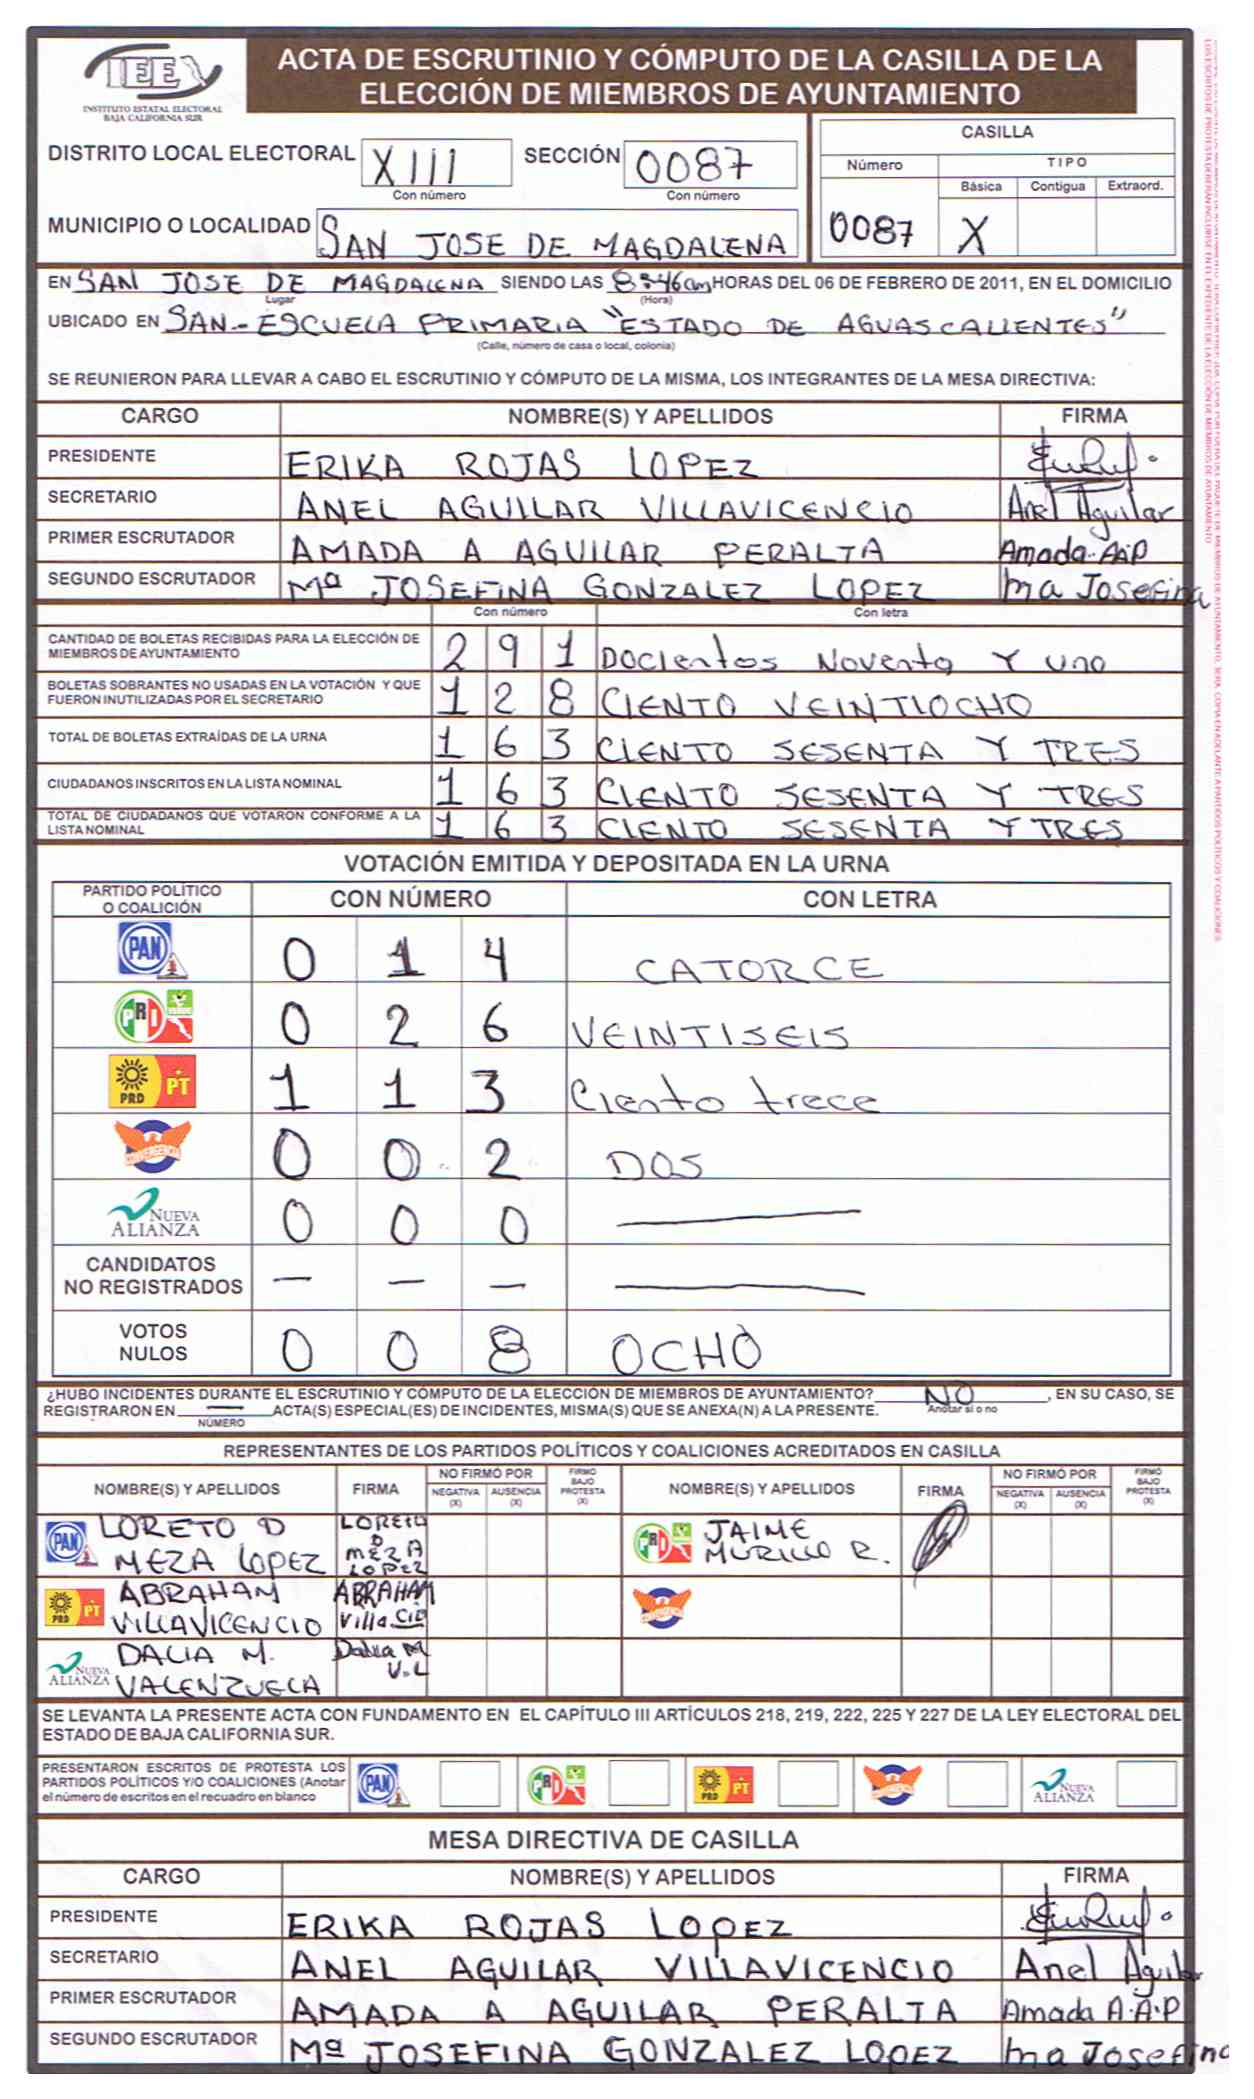 IEE
INSTITUTO ESTATAL ELECTORAL
BAJA CALIFORNIA SUR
ACTA DE ESCRUTINIO Y CÓMPUTO DE LA CASILLA DE LA
ELECCIÓN DE MIEMBROS DE AYUNTAMIENTO
DISTRITO LOCAL ELECTORAL XIII SECCIÓN 0087
Con número Con número
MUNICIPIO O LOCALIDAD SAN JOSE DE MAGDALENA
CASILLA
Número TIPO
Básica Contigua Extraord.
0087 X
EN SAN JOSE DE MAGDALENA SIENDO LAS 8:46am HORAS DEL 06 DE FEBRERO DE 2011, EN EL DOMICILIO
Lugar (Hora)
UBICADO EN SAN- ESCUELA PRIMARIA "ESTADO DE AGUASCALIENTES"
(Calle, número de casa o local, colonia)
SE REUNIERON PARA LLEVAR A CABO EL ESCRUTINIO Y CÓMPUTO DE LA MISMA, LOS INTEGRANTES DE LA MESA DIRECTIVA:
CARGO NOMBRE(S) Y APELLIDOS FIRMA
PRESIDENTE ERIKA ROJAS LOPEZ
SECRETARIO ANEL AGUILAR VILLAVICENCIO Anel Aguilar
PRIMER ESCRUTADOR AMADA A AGUILAR PERALTA Amada A.A.P
SEGUNDO ESCRUTADOR Mª JOSEFINA GONZALEZ LOPEZ Ma Josefina
Con número Con letra
CANTIDAD DE BOLETAS RECIBIDAS PARA LA ELECCIÓN DE
MIEMBROS DE AYUNTAMIENTO 2 9 1 Docientos Noventa Y uno
BOLETAS SOBRANTES NO USADAS EN LA VOTACIÓN Y QUE
FUERON INUTILIZADAS POR EL SECRETARIO 1 2 8 CIENTO VEINTIOCHO
TOTAL DE BOLETAS EXTRAÍDAS DE LA URNA 1 6 3 CIENTO SESENTA Y TRES
CIUDADANOS INSCRITOS EN LA LISTA NOMINAL 1 6 3 CIENTO SESENTA Y TRES
TOTAL DE CIUDADANOS QUE VOTARON CONFORME A LA
LISTA NOMINAL 1 6 3 CIENTO SESENTA Y TRES
VOTACIÓN EMITIDA Y DEPOSITADA EN LA URNA
PARTIDO POLÍTICO
O COALICIÓN CON NÚMERO CON LETRA
PAN 0 1 4 CATORCE
PRI 0 2 6 VEINTISEIS
PRD PT 1 1 3 Ciento trece
CONVERGENCIA 0 0 2 DOS
NUEVA
ALIANZA 0 0 0 —
CANDIDATOS
NO REGISTRADOS — — — —
VOTOS
NULOS 0 0 8 OCHO
¿HUBO INCIDENTES DURANTE EL ESCRUTINIO Y CÓMPUTO DE LA ELECCIÓN DE MIEMBROS DE AYUNTAMIENTO? NO, EN SU CASO, SE
Anotar si o no
REGISTRARON EN — ACTA(S) ESPECIAL(ES) DE INCIDENTES, MISMA(S) QUE SE ANEXA(N) A LA PRESENTE.
NÚMERO
REPRESENTANTES DE LOS PARTIDOS POLÍTICOS Y COALICIONES ACREDITADOS EN CASILLA
NOMBRE(S) Y APELLIDOS FIRMA NO FIRMÓ POR NEGATIVA (X) AUSENCIA (X) FIRMÓ BAJO PROTESTA (X) NOMBRE(S) Y APELLIDOS FIRMA NO FIRMÓ POR NEGATIVA (X) AUSENCIA (X) FIRMÓ BAJO PROTESTA (X)
PAN LORETO D MEZA LOPEZ LORETO D MEZA LOPEZ PRI JAIME MURILLO R.
PRD PT ABRAHAM VILLAVICENCIO ABRAHAM Villa.CIO CONVERGENCIA
NUEVA ALIANZA DALIA M. VALENZUELA Dalia M V.L
SE LEVANTA LA PRESENTE ACTA CON FUNDAMENTO EN EL CAPÍTULO III ARTÍCULOS 218, 219, 222, 225 Y 227 DE LA LEY ELECTORAL DEL
ESTADO DE BAJA CALIFORNIA SUR.
PRESENTARON ESCRITOS DE PROTESTA LOS
PARTIDOS POLÍTICOS Y/O COALICIONES (Anotar
el número de escritos en el recuadro en blanco
PAN PRI PRD PT CONVERGENCIA NUEVA ALIANZA
MESA DIRECTIVA DE CASILLA
CARGO NOMBRE(S) Y APELLIDOS FIRMA
PRESIDENTE ERIKA ROJAS LOPEZ
SECRETARIO ANEL AGUILAR VILLAVICENCIO Anel Aguilar
PRIMER ESCRUTADOR AMADA A AGUILAR PERALTA Amada A.A.P
SEGUNDO ESCRUTADOR Mª JOSEFINA GONZALEZ LOPEZ Ma Josefina